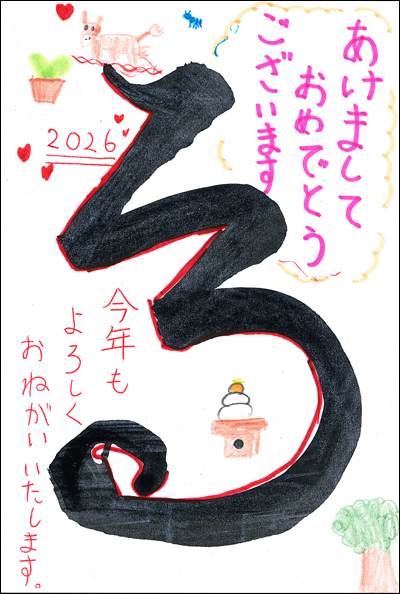 あけまして
おめでとう
ございます
2026
る
今年も
よろしく
おねがいいたします。